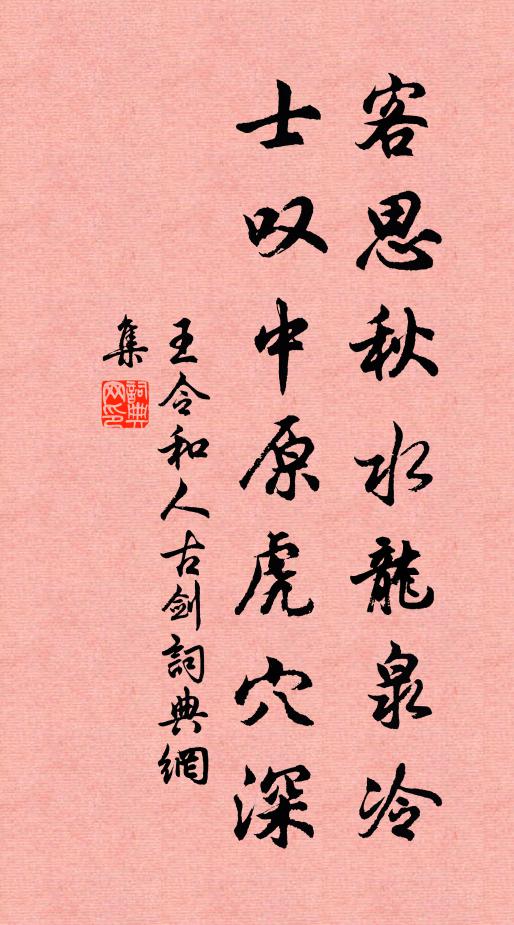 客思秋水龍泉冷
士叹中原虎穴深
王令和人古劍詞典網
集
詞典網印